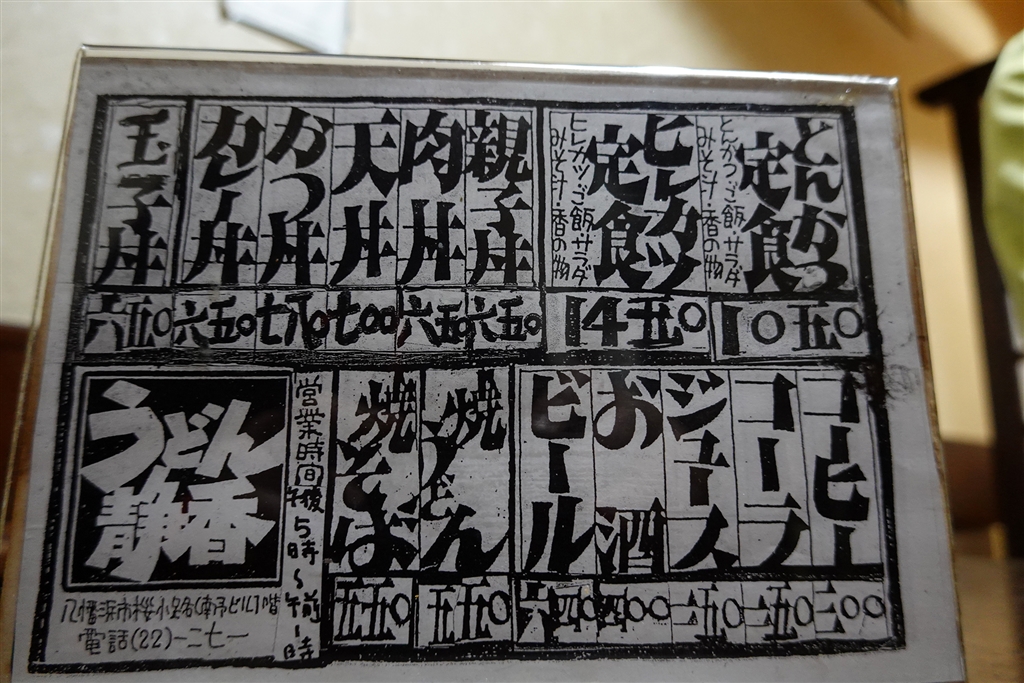 とんかつ定食
とんかつ・ご飯・サラダ
みそ汁・香の物
一〇五〇
ヒレカツ定食
ヒレカツ・ご飯・サラダ
みそ汁・香の物
14五〇
親子丼
六五〇
肉丼
六五〇
天丼
七〇〇
かつ丼
七八〇
カレー丼
六五〇
玉子丼
六五〇
コーヒー
三〇〇
コーラ
二五〇
ジュース
二五〇
お酒
四〇〇
ビール
六四〇
焼うどん
五五〇
焼そば
五五〇
営業時間 午後5時〜午前一時
うどん
静香
八幡浜市桜小路(南予ビル)1階
電話(22)一二七一